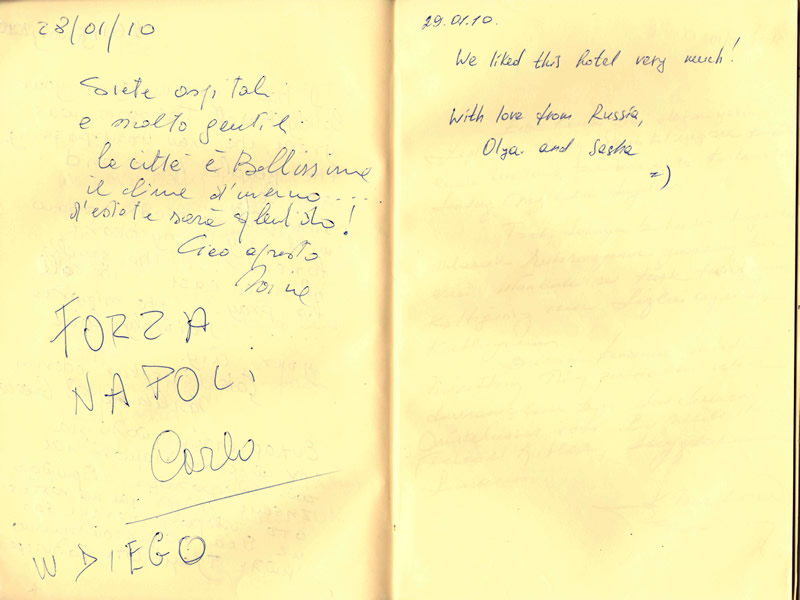 28/01/10
Siete ospitali
e molto gentili
la città è Bellissima
il clima d'inverno ....
d'estate sarà splendido!
Ciao a presto
FORZA
NAPOLI
Carlo
W DIEGO
29.01.10.
We liked this hotel very much!
With love from Russia,
Olga and Sasha
=)